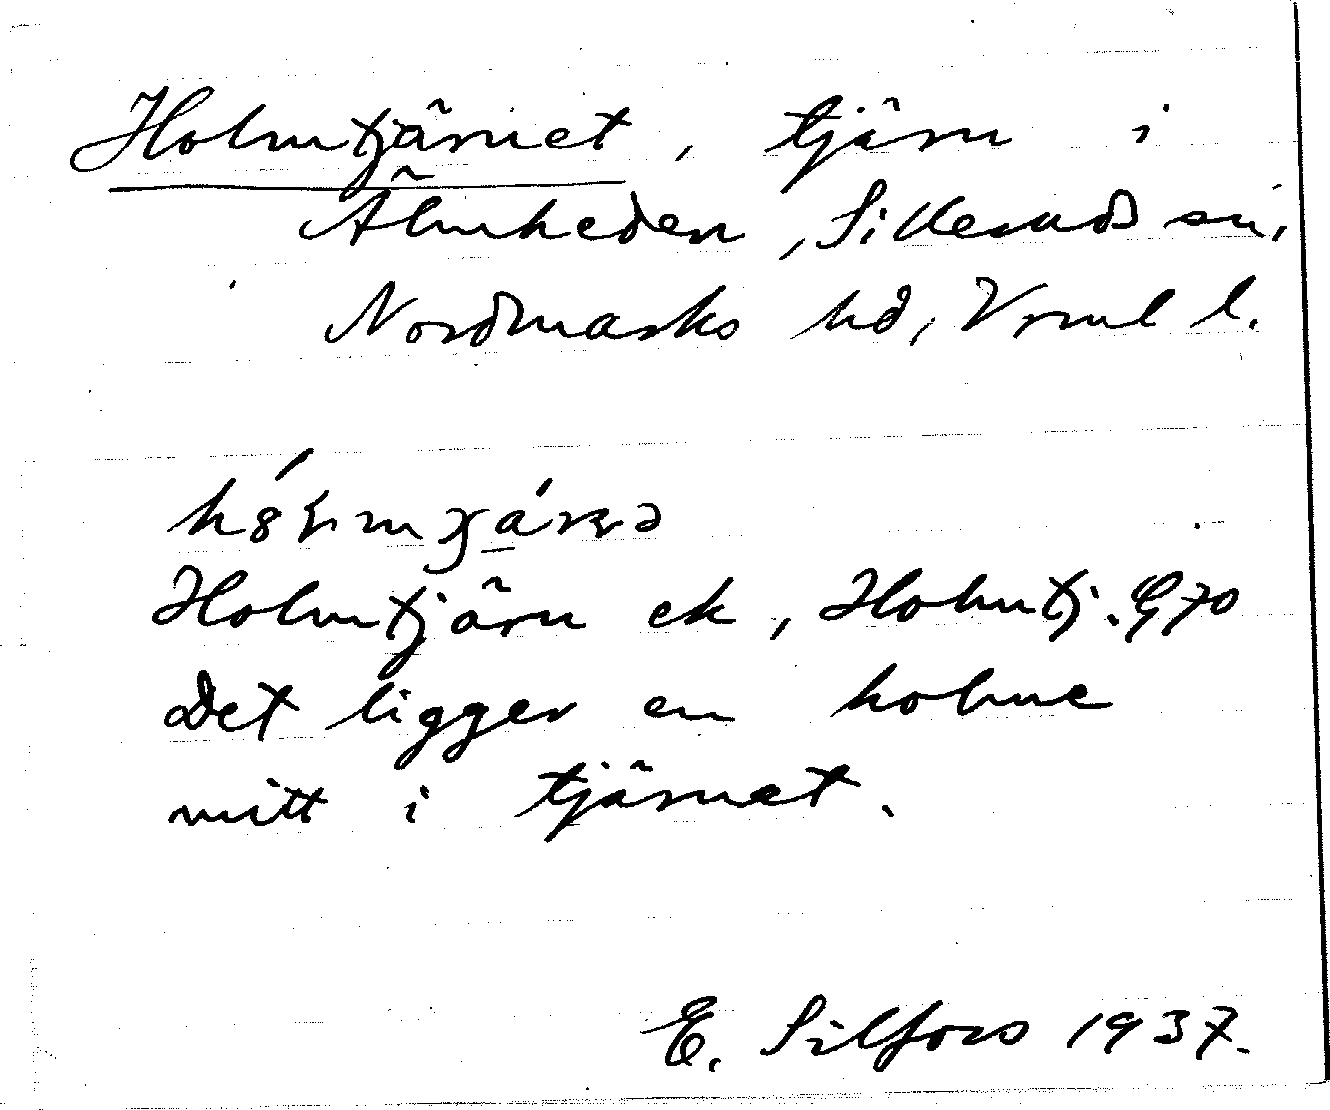 Holmtjärnet, tjärn i
Älmheden, Sillerud sn,
Nordmarks hd, Vrml l.
Holmtjärn ek, Holmtj. G70
Det ligger en holme
mitt i tjärnet.
E. Silfors 1937.